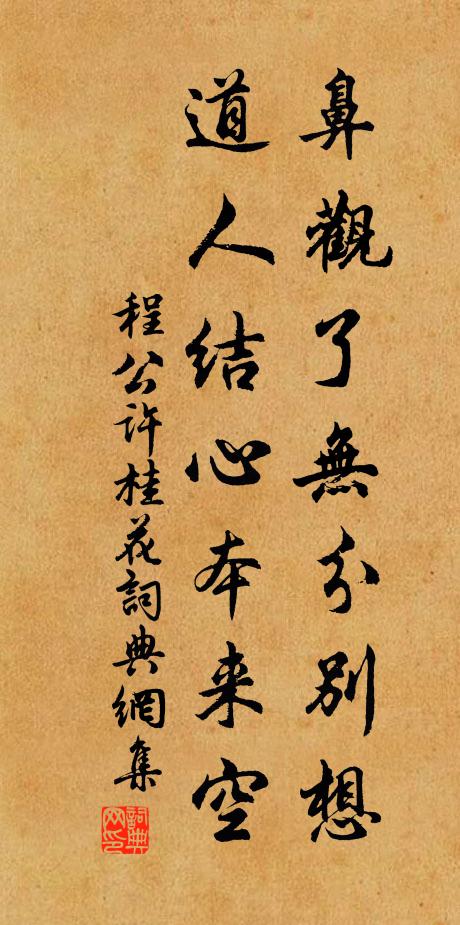 鼻觀了無分別想
道人結心本来空
程公許桂花詞典網集
詞典网印